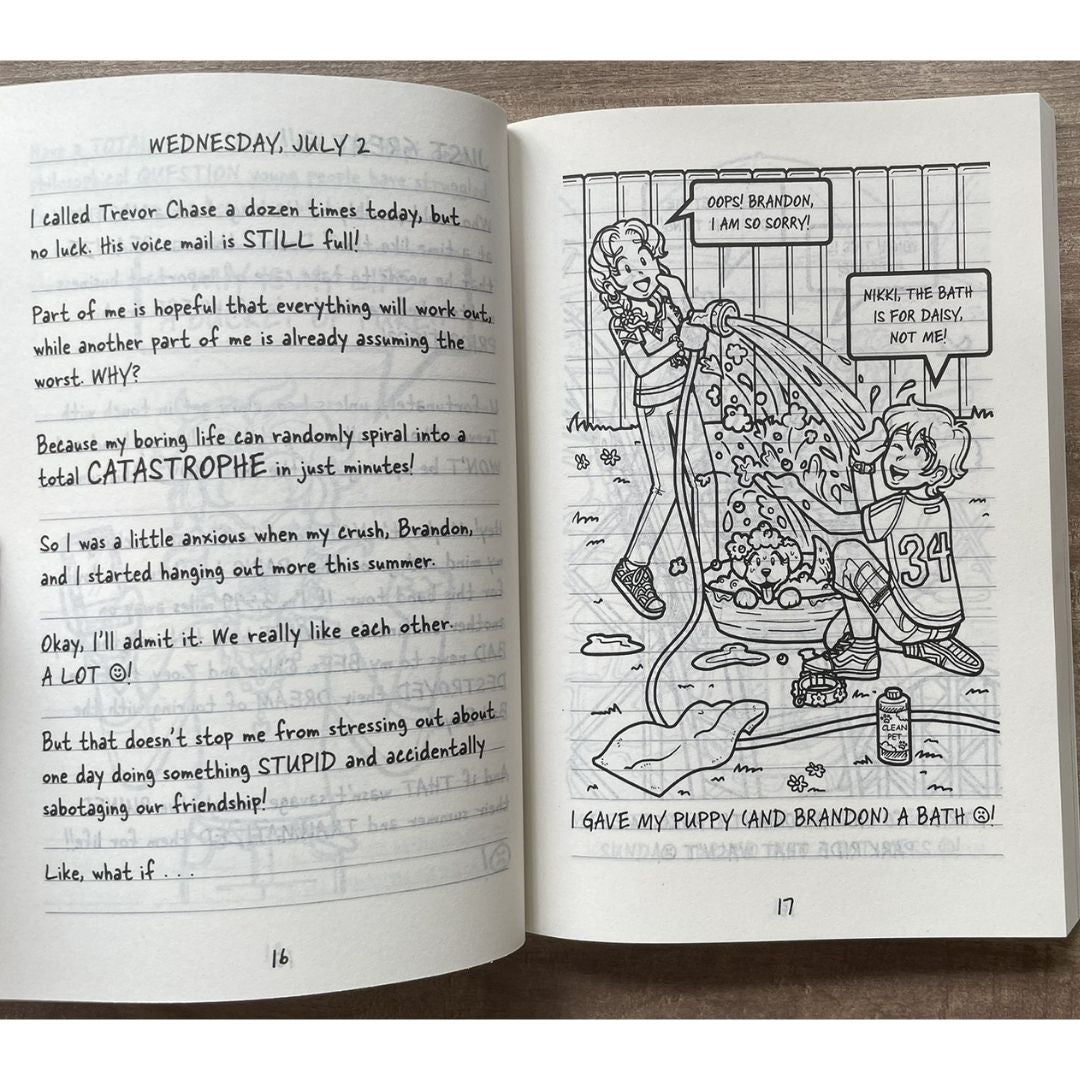 WEDNESDAY, JULY 2
I called Trevor Chase a dozen times today, but
no luck. His voice mail is STILL full!
Part of me is hopeful that everything will work out,
while another part of me is already assuming the
worst. WHY?
Because my boring life can randomly spiral into a
total CATASTROPHE in just minutes!
So I was a little anxious when my crush, Brandon,
and I started hanging out more this summer.
Okay, I'll admit it. We really like each other.
A LOT ☺!
But that doesn't stop me from stressing out about
one day doing something STUPID and accidentally
sabotaging our friendship!
Like, what if . . .
16
OOPS! BRANDON,
I AM SO SORRY!
NIKKI, THE BATH
IS FOR DAISY,
NOT ME!
34
CLEAN
PET
I GAVE MY PUPPY (AND BRANDON) A BATH ☹!
17